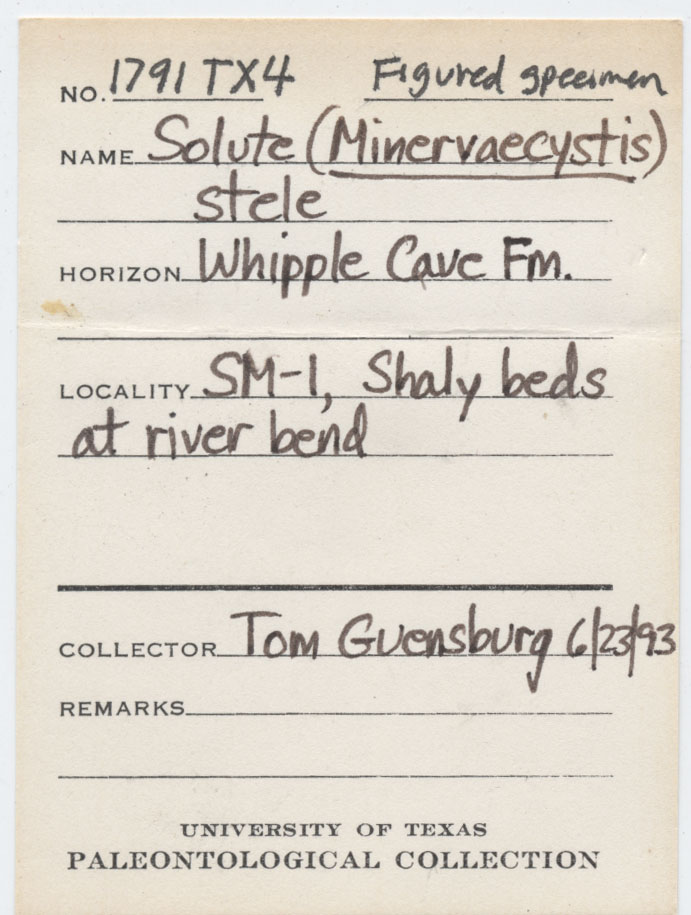 NO. 1791 TX4 Figured specimen
NAME Solute (Minervaecystis)
stele
HORIZON Whipple Cave Fm.
LOCALITY SM-1, Shaly beds
at river bend
COLLECTOR Tom Guensburg 6/23/93
REMARKS
UNIVERSITY OF TEXAS
PALEONTOLOGICAL COLLECTION